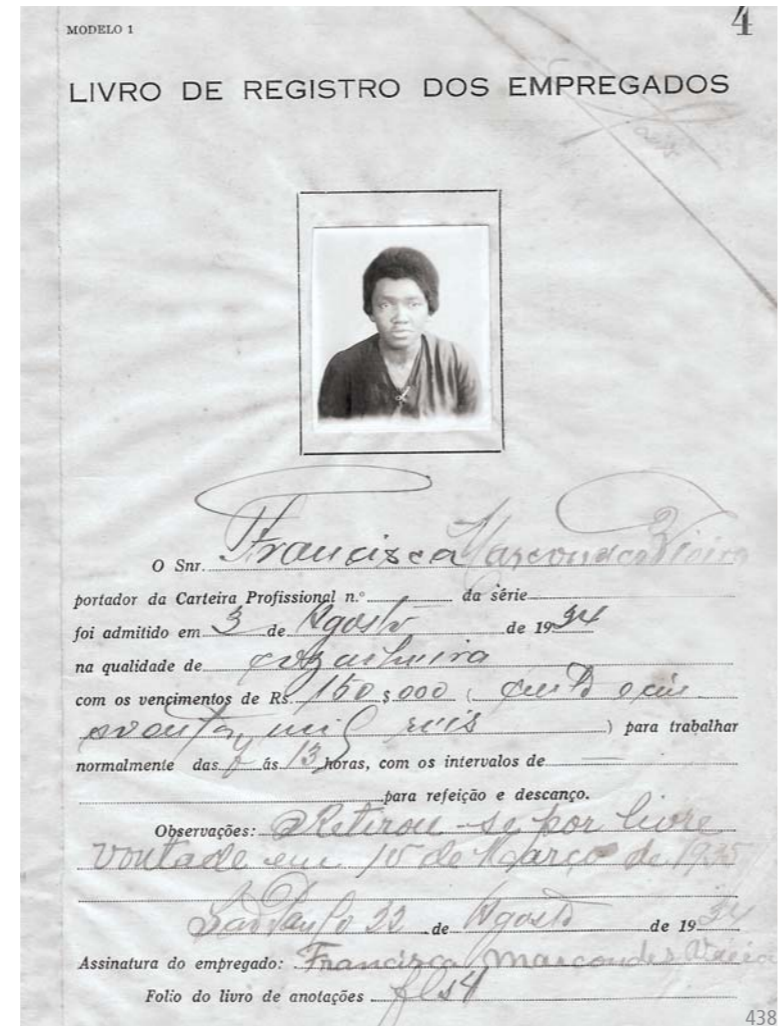 MODELO 1
4
LIVRO DE REGISTRO DOS EMPREGADOS
O Snr. Francisca Marcondes Vieira
portador da Carteira Profissional n.º da série
foi admitido em 3 de Agosto de 1934
na qualidade de cozinheira
com os vencimentos de Rs. 150$000 ( cento e cin
coenta mil reis ) para trabalhar
normalmente das ás 13 horas, com os intervalos de —
para refeição e descanço.
Observações: Retirou-se por livre
vontade em 15 de Março de 1935
São Paulo 22 de Agosto de 1934
Assinatura do empregado: Francisca Marcondes Vieira
Folio do livro de anotações fls 4
438